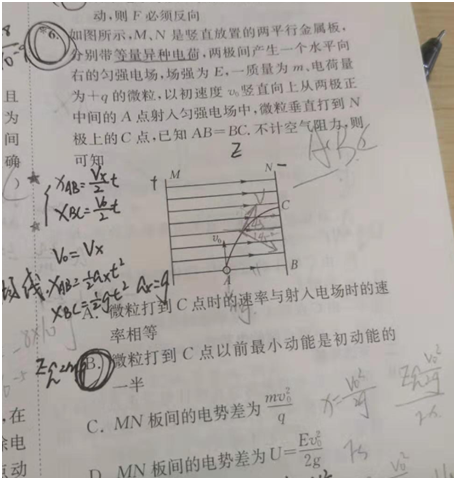 动,则F必须反向
6. 如图所示,M、N是竖直放置的两平行金属板,
分别带等量异种电荷,两极间产生一个水平向
右的匀强电场,场强为E,一质量为m、电荷量
为+q的微粒,以初速度v₀竖直向上从两极正
中间的A点射入匀强电场中,微粒垂直打到N
极上的C点,已知AB=BC.不计空气阻力,则
可知
且
为
间
确
Z
ABC
M
N
+
−
C
v₀
A
B
X_AB=\frac{V_x}{2}t
X_BC=\frac{V_0}{2}t
V₀=V_x
X_AB=\frac{1}{2}a_xt²
a_x=g
X_BC=\frac{1}{2}gt²
A. 微粒打到C点时的速率与射入电场时的速
率相等
B. 微粒打到C点以前最小动能是初动能的
一半
C. MN板间的电势差为\frac{mv₀²}{q}
D. MN板间的电势差为U=\frac{Ev₀²}{2g}
在
除电
点动